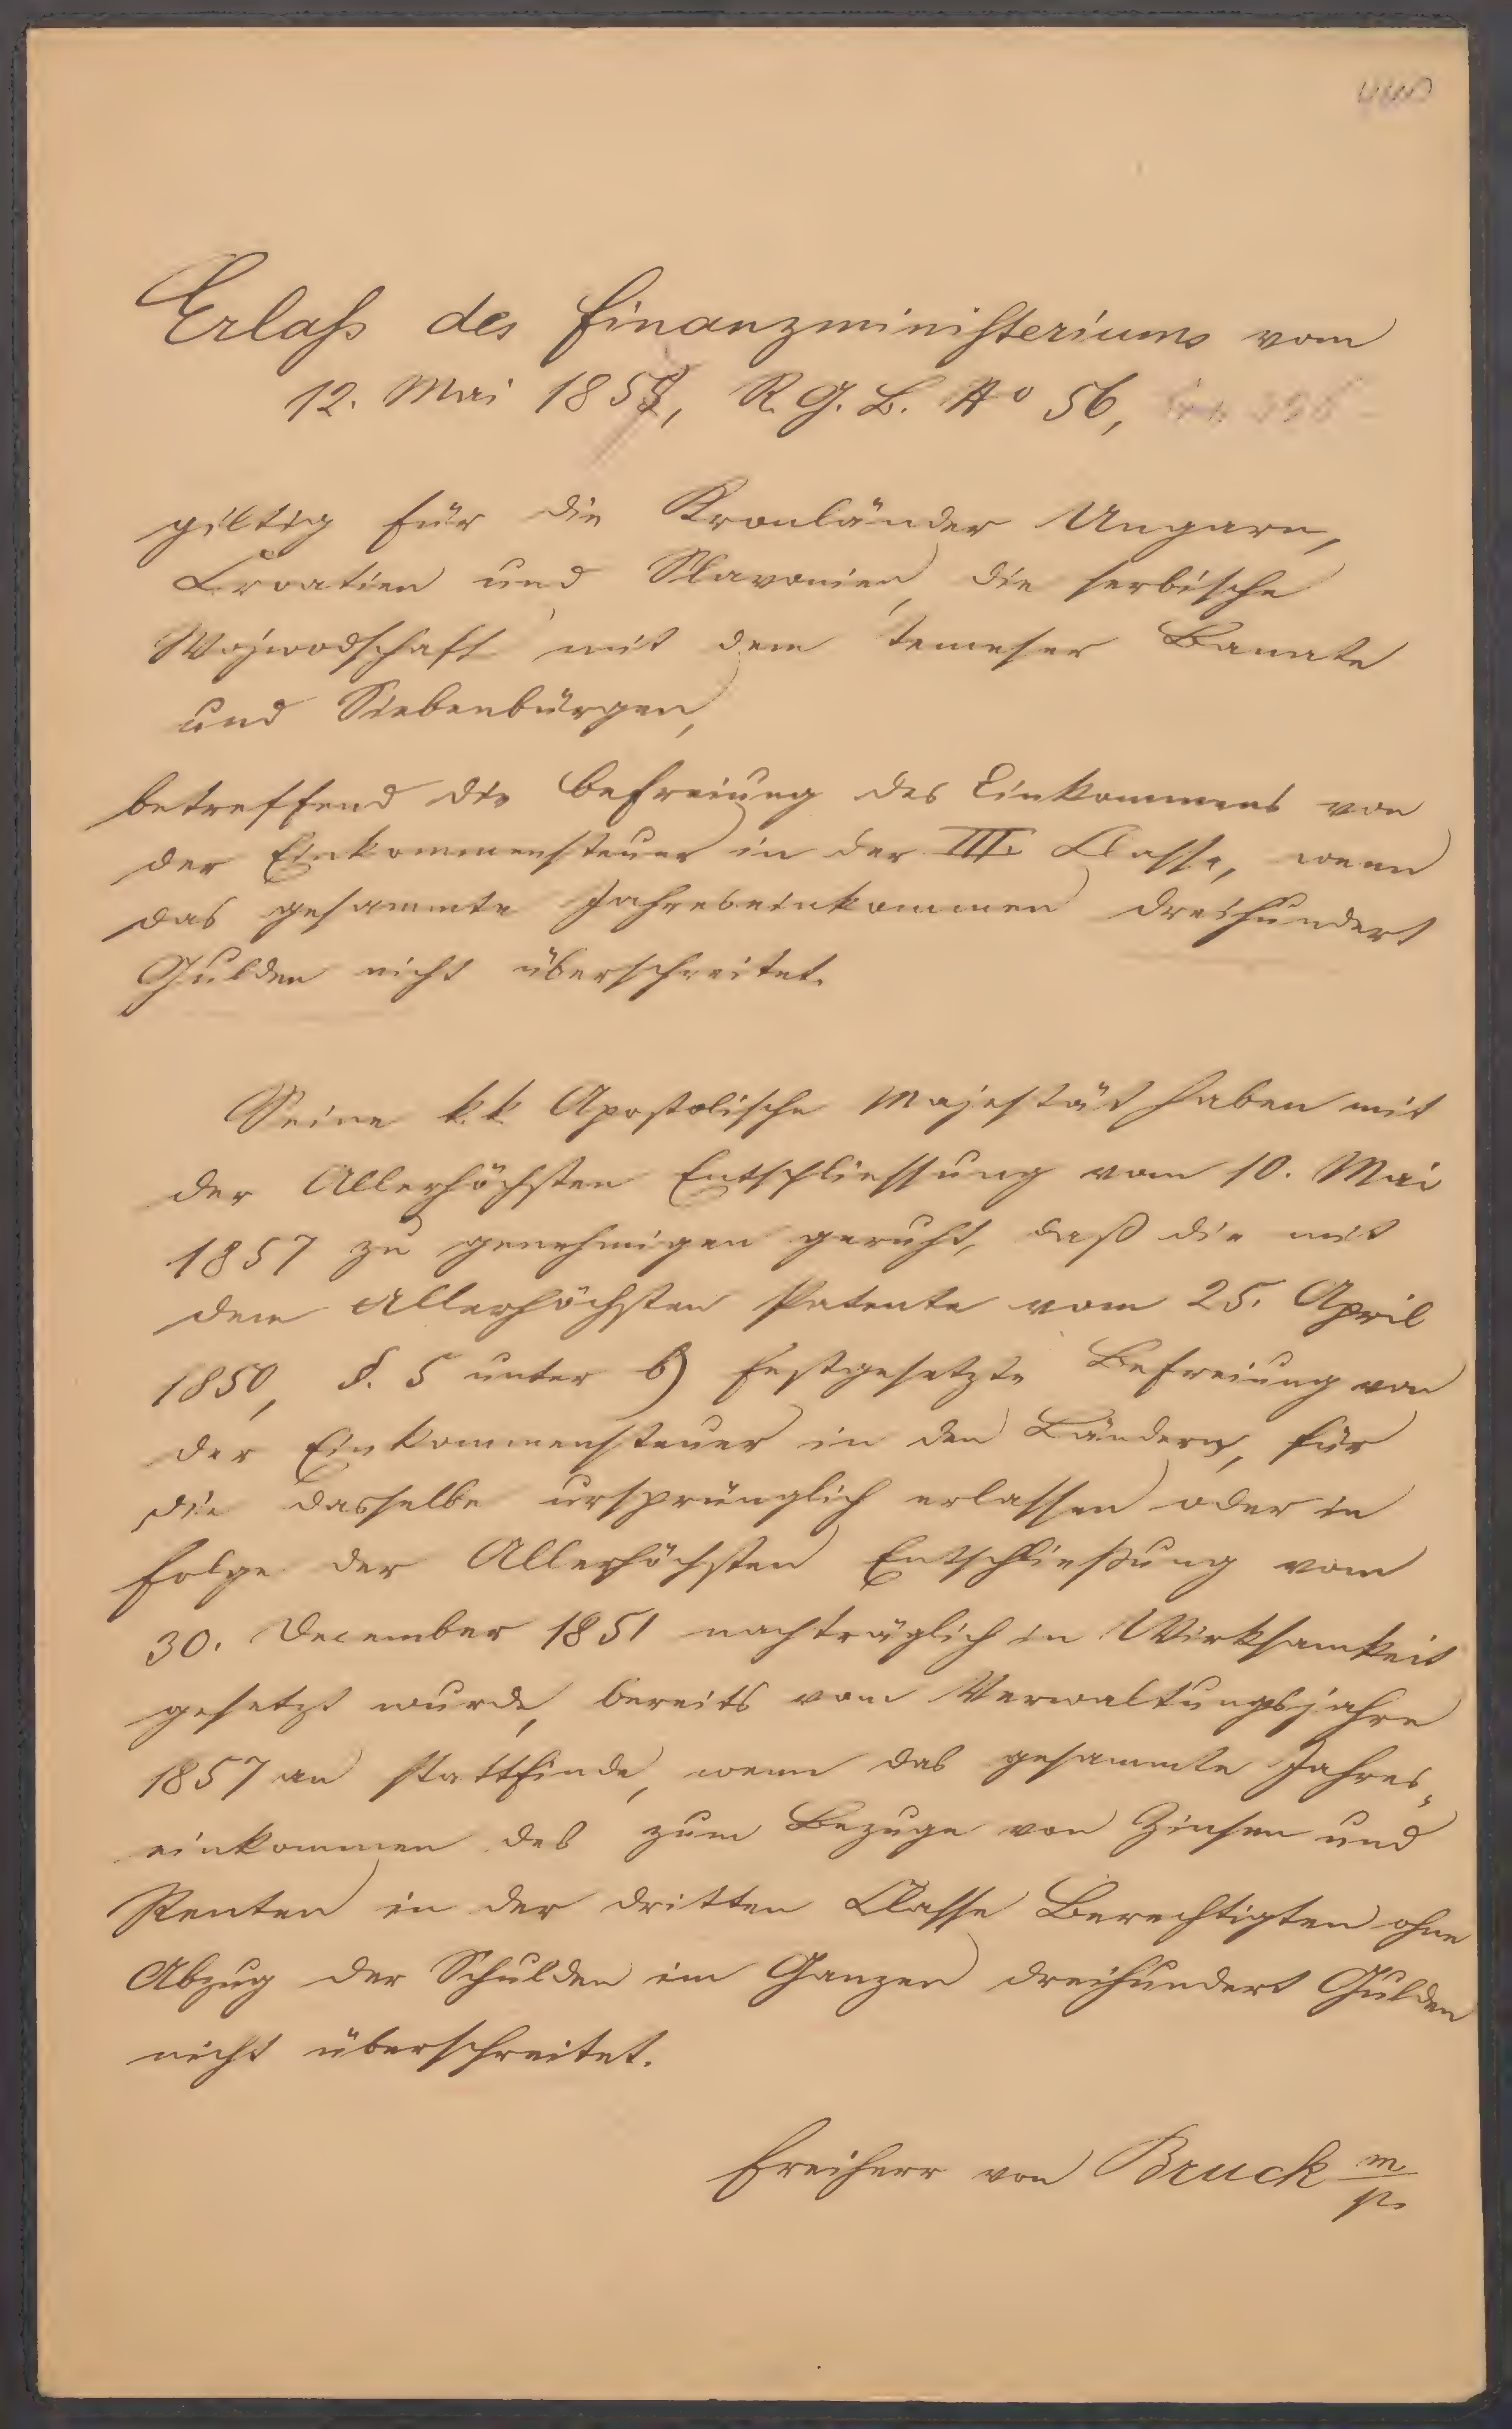 Erlaß des Finanzministeriums vom
12. Mai 1857, R. G. B. No 56,
giltig für die Kronländer Ungarn,
Croatien und Slavonien, die serbische
Wojwodschaft mit dem temeser Banate
und Siebenbürgen,
betreffend die Befreiung des Einkommens von
der Einkommensteuer in der III. Classe, wenn
das gesammte Jahreseinkommen dreihundert
Gulden nicht überschreitet.
Seine k. k. Apostolische Majestät haben mit
der Allerhöchsten Entschliessung vom 10. Mai
1857 zu genehmigen geruht, daß die mit
dem Allerhöchsten Patente vom 25. April
1850, §. 5 unter b) festgesetzte Befreiung von
der Einkommensteuer in den Ländern, für
die dasselbe ursprünglich erlassen oder in
Folge der Allerhöchsten Entschließung vom
30. December 1851 nachträglich in Wirksamkeit
gesetzt wurde, bereits vom Verwaltungsjahre
1857 an stattfinde, wenn das gesammte Jahres-
einkommen des zum Bezuge von Zinsen und
Renten in der dritten Classe Berechtigten ohne
Abzug der Schulden im Ganzen dreihundert Gulden
nicht überschreitet.
Freiherr von Bruck m/p.